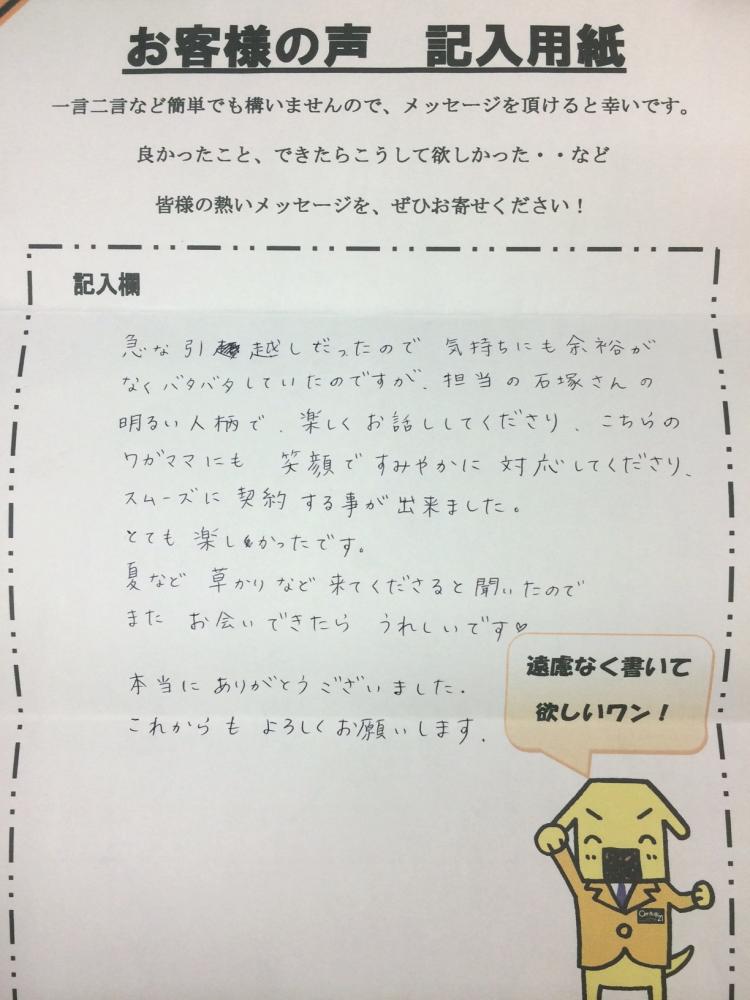 お客様の声　記入用紙
一言二言など簡単でも構いませんので、メッセージを頂けると幸いです。
良かったこと、できたらこうして欲しかった・・など
皆様の熱いメッセージを、ぜひお寄せください！
記入欄
急な引越しだったので 気持ちにも余裕が
なくバタバタしていたのですが、担当の石塚さんの
明るい人柄で、楽しくお話ししてくださり、こちらの
ワガママにも 笑顔ですみやかに対応してくださり、
スムーズに契約する事が出来ました。
とても楽しかったです。
夏など草かりなど来てくださると聞いたので
また お会いできたら うれしいです♡
本当にありがとうございました。
これからも よろしくお願いします。
遠慮なく書いて
欲しいワン！
Century 21